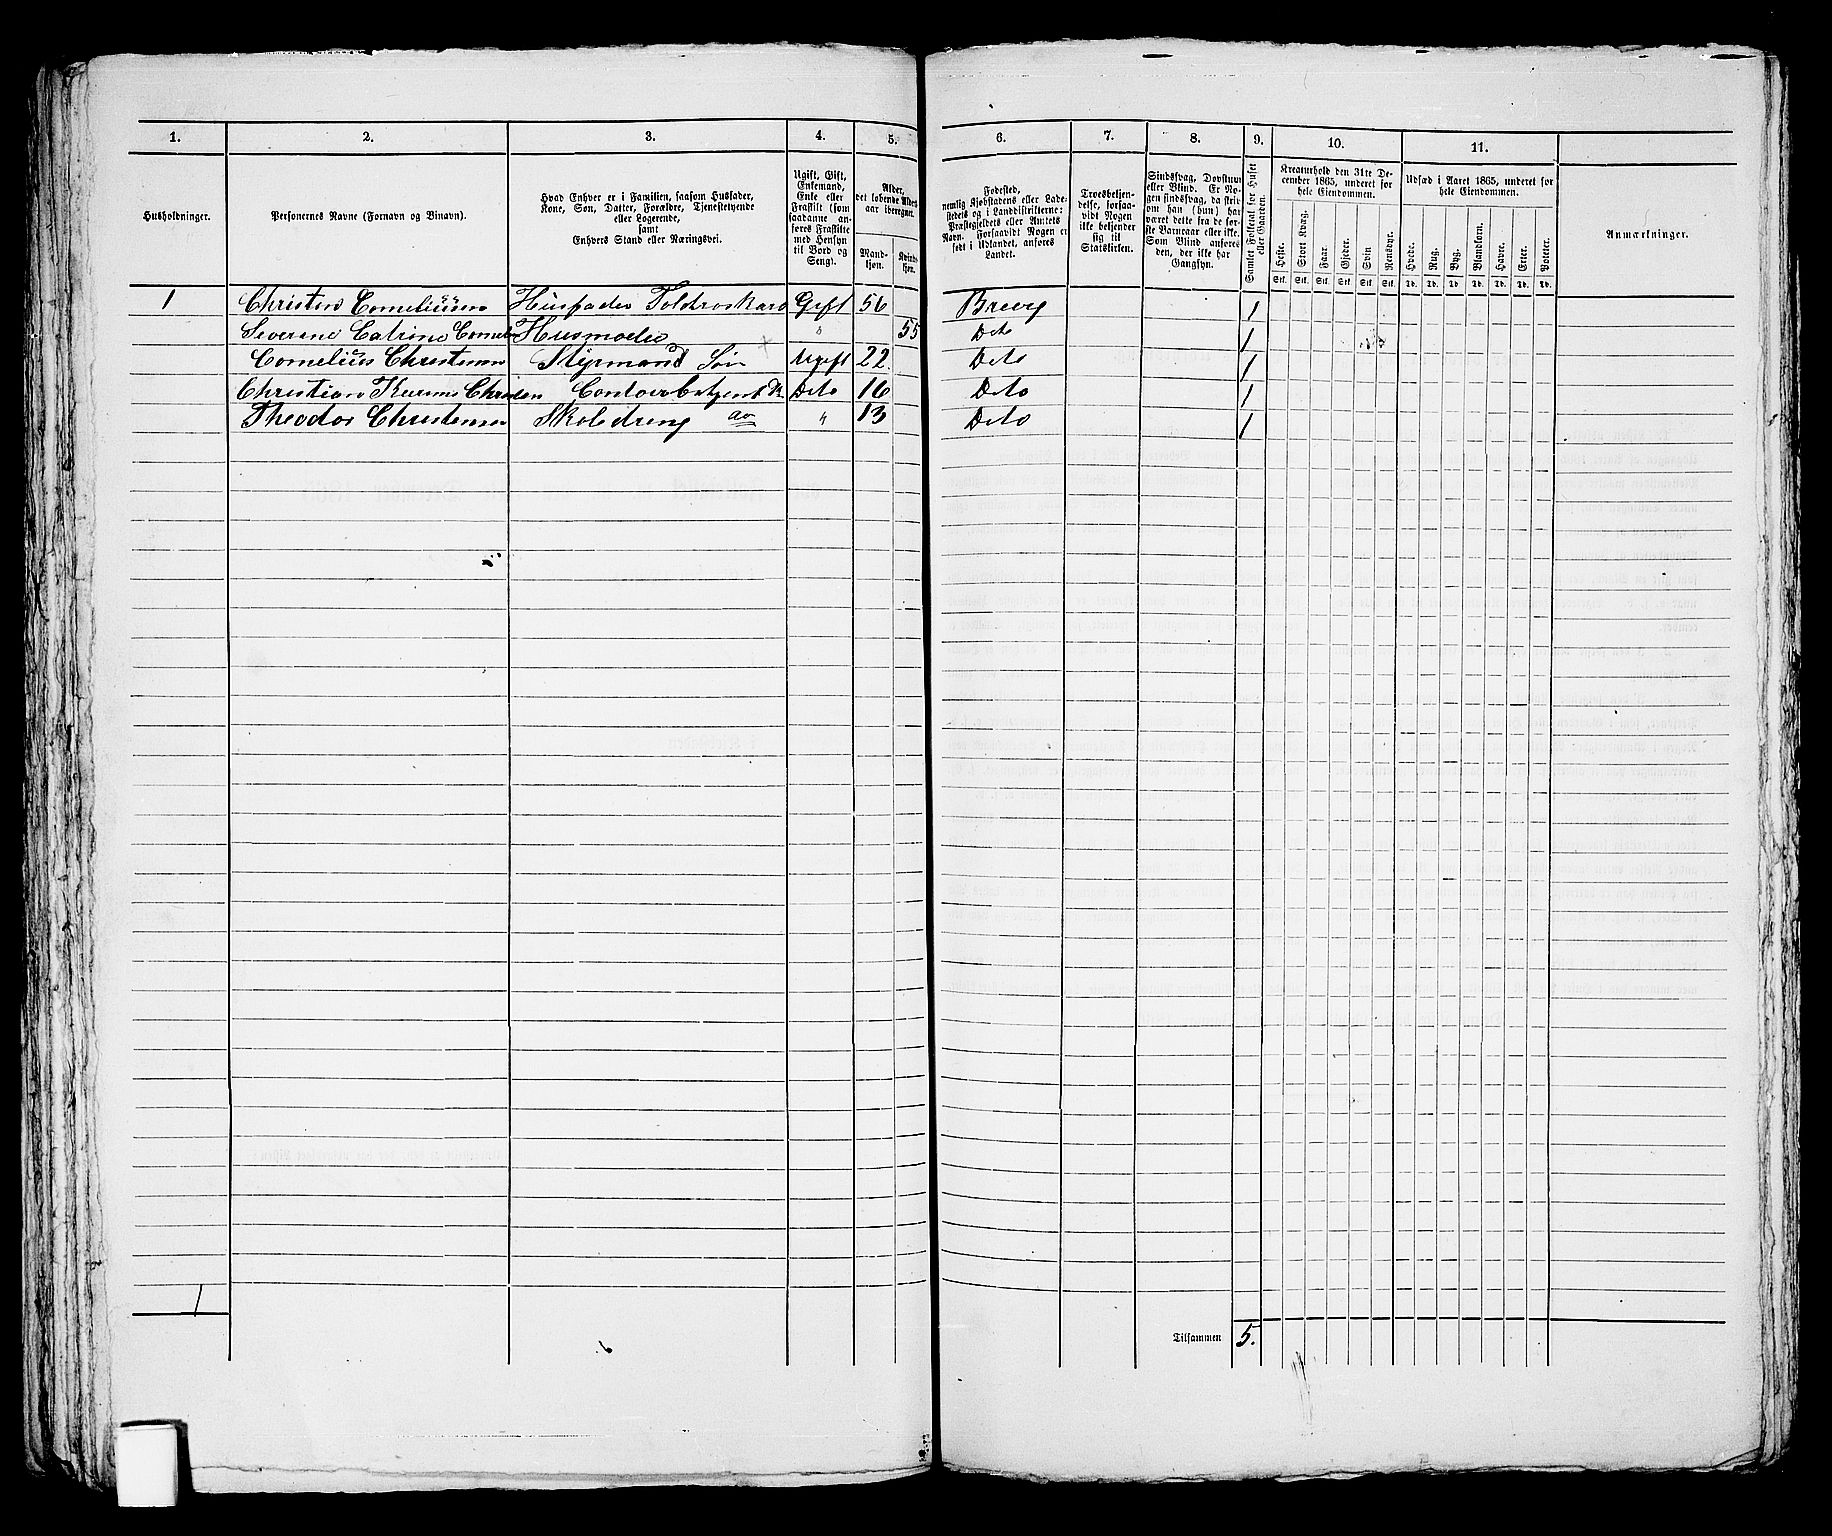 1. 2. 3. 4. 5. 6. 7. 8. 9. 10. 11.
Husholdninger.
Personernes Navne (Fornavn og Binavn).
Hvad Enhver er i Familien, saasom Husfader,
Kone, Søn, Datter, Forældre, Tjenestetyende
eller Logerende,
samt
Enhvers Stand eller Næringsvei.
Ugift, Gift,
Enkemand,
Enke eller
Fraskilt (som
saadanne an-
føres Fraskilte
med Hensyn
til Bord og
Seng).
Alder,
det løbende Alders-
aar iberegnet.
Mand-
kjøn.
Kvinde-
kjøn.
Fødested,
nemlig Kjøbstadens eller Lade-
stedets og i Landdistrikterne:
Præstegjeldets eller Amtets
Navn. Forsaavidt Nogen er
født i Udlandet, anføres
Landet.
Troesbekjen-
delse, forsaa-
vidt Nogen
ikke bekjender
sig til
Statskirken.
Sindssvag, Døvstum
eller Blind. Er No-
gen sindssvag, da skri-
ves om han (hun) har
været dette fra de før-
ste Barneaar eller ikke.
Som Blind anføres
den, der ikke har
Gangsyn.
Samlet Folketal for Huset
eller Gaarden.
Kreaturhold den 31te De-
cember 1865, underet for
hele Eiendommen.
Heste. Stort Kvæg. Faar. Gjeder. Svin Rensdyr.
Stk. Stk. Stk. Stk Stk. Stk.
Udsæd i Aaret 1865, underet for
hele Eiendommen.
Hvede. Rug. Byg. Blandkorn. Havre. Erter. Poteter.
Td. Td. Td Td. Td. Td. Td.
Anmærkninger.
1 Christen Corneliusen Husfader Toldroskarl Gift 56 Brevig 1
Severene Catrine Cornel Husmoder " 55 Dito 1
Cornelius Christensen Styrmand Søn Ugift 22 Dito 1
Christian Christen Contoirbetjent Dito 16 Dito 1
Theodor Christensen Skoledreng do " 13 Dito 1
1
Tilsammen 5.